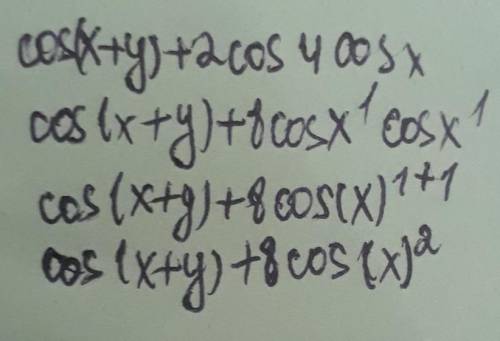 cos(x+y)+2cos 4 cosx
cos(x+y)+8cosx¹ cosx¹
cos(x+y)+8cos(x)¹⁺¹
cos(x+y)+8cos(x)²